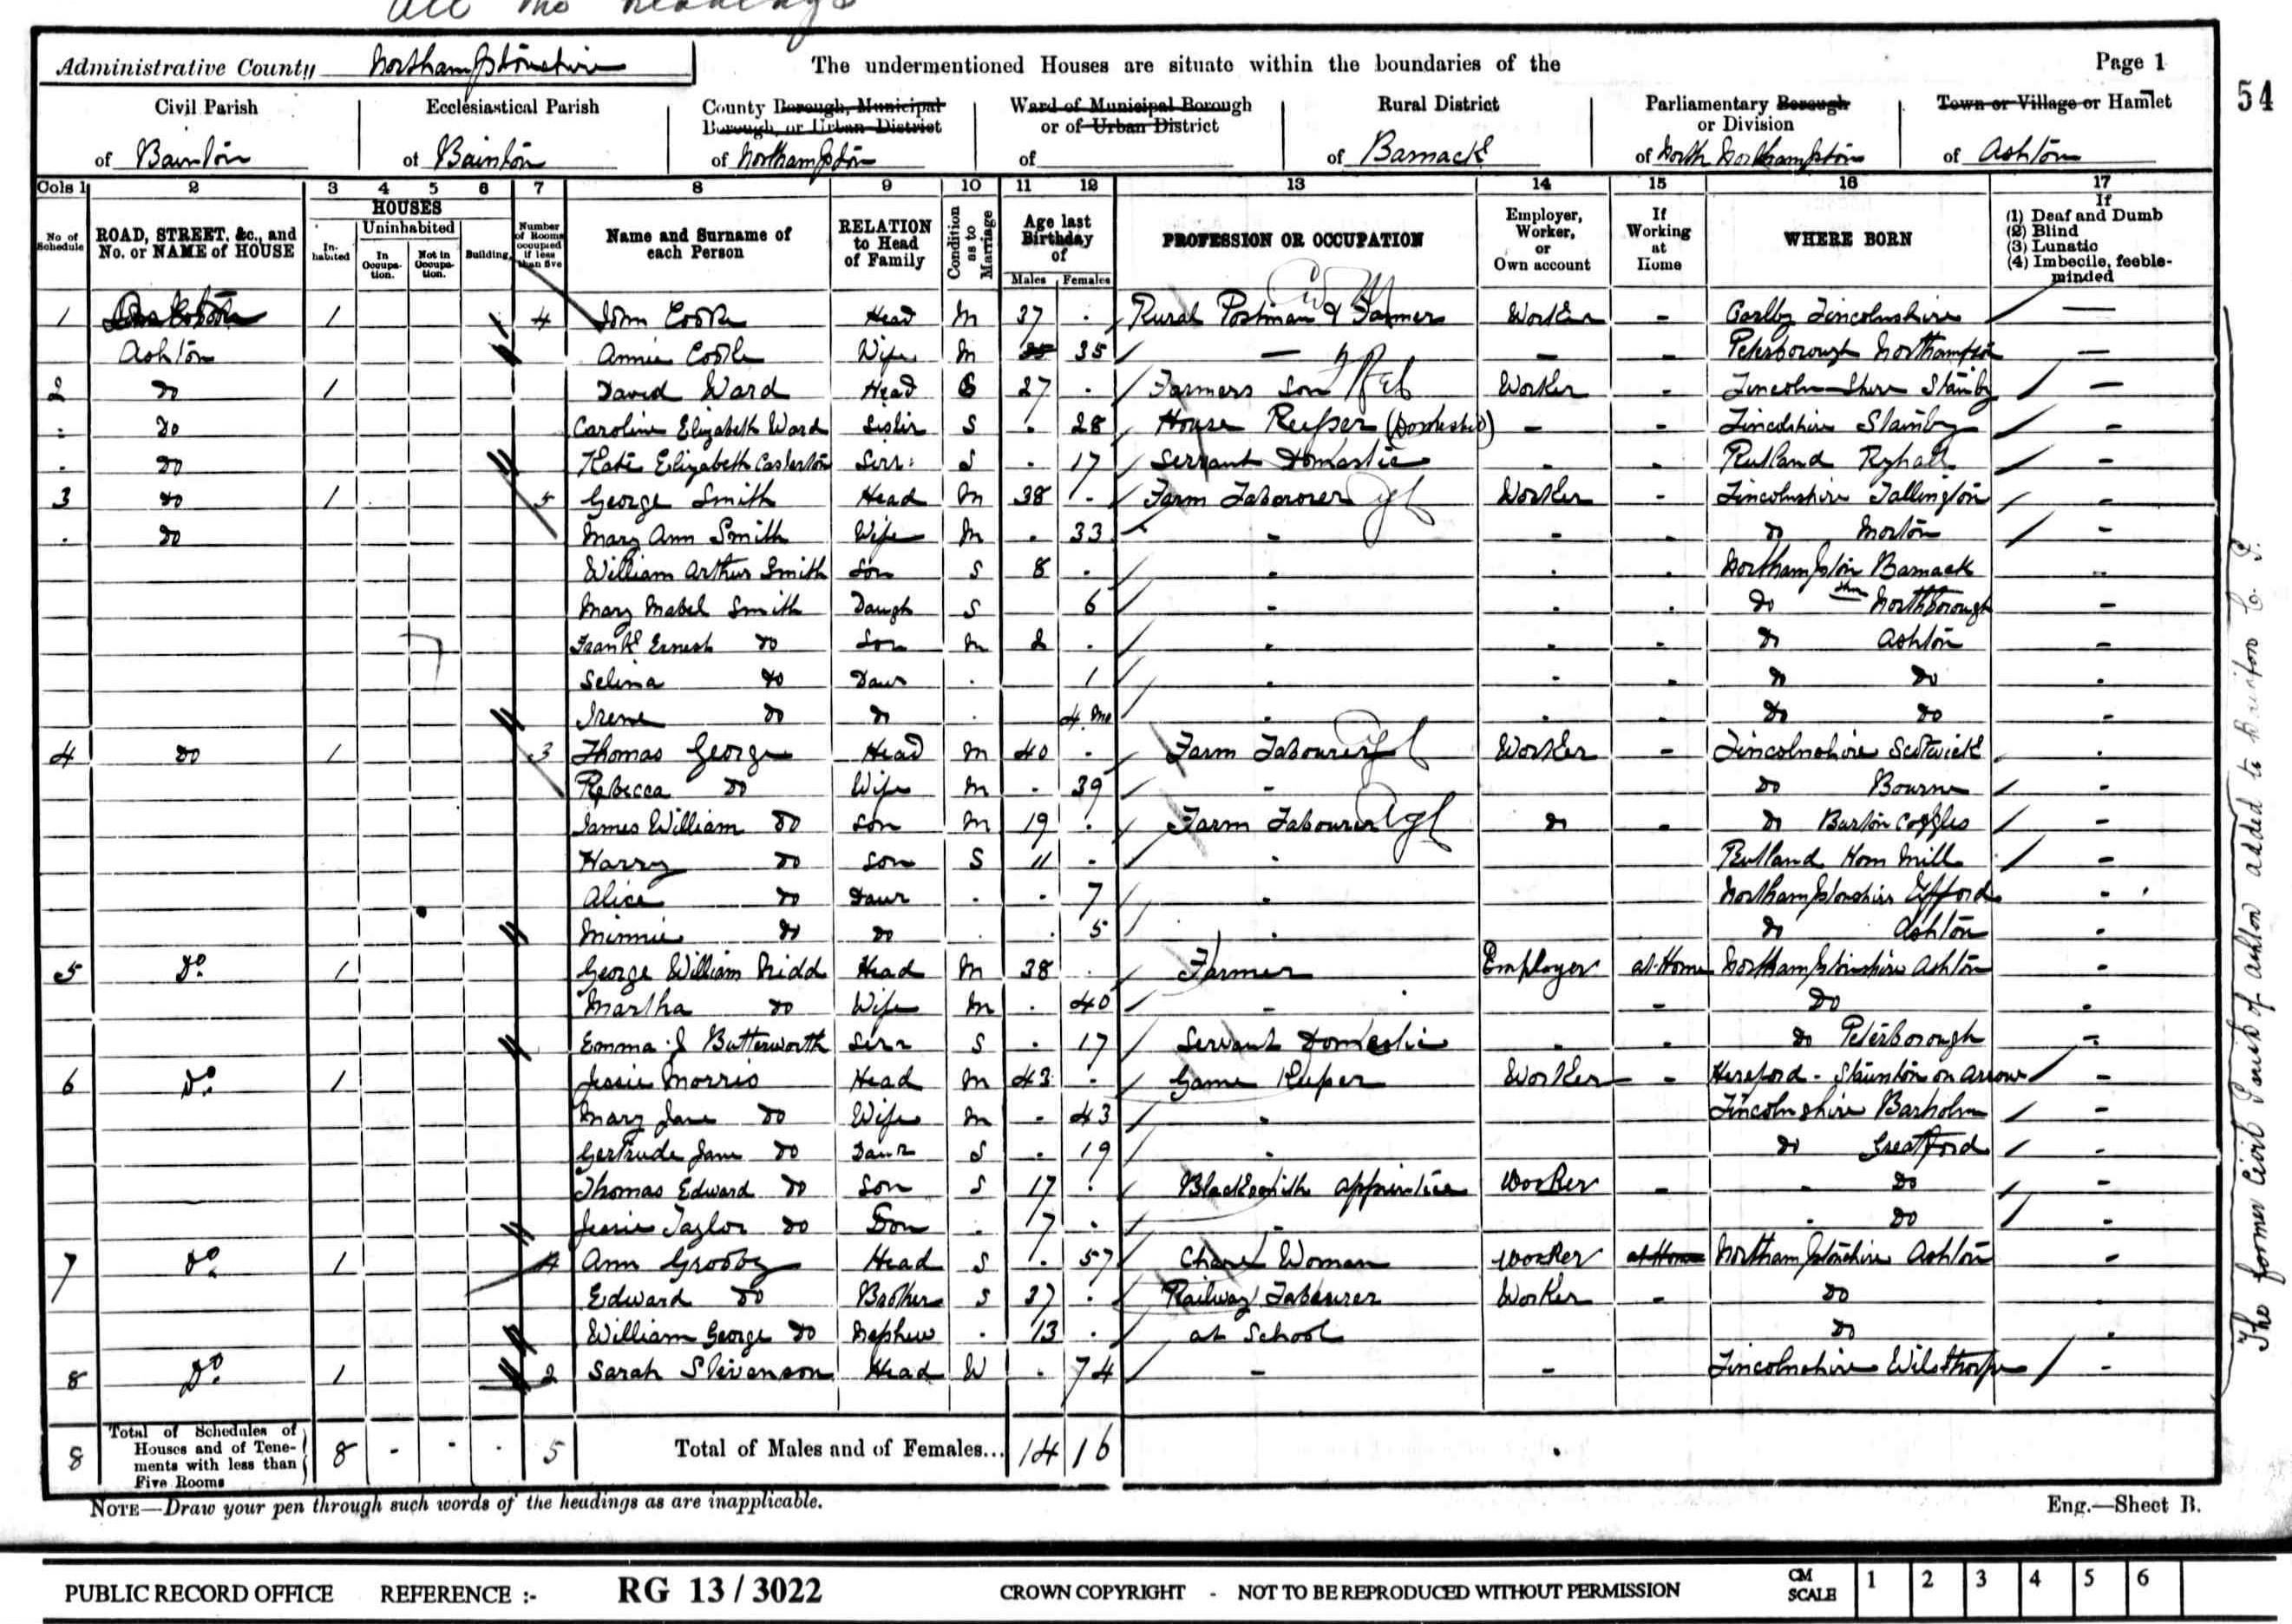 all the headings
Administrative County Northamptonshire The undermentioned Houses are situate within the boundaries of the Page 1
54
Civil Parish Ecclesiastical Parish County Borough, Municipal Borough, or Urban District Ward of Municipal Borough or of Urban District Rural District Parliamentary Borough or Division Town or Village or Hamlet
of Bainton of Bainton of Northampton of of Barnack of North Northampton of Ashton
Cols 1 2 3 4 5 6 7 8 9 10 11 12 13 14 15 16 17
No. of Schedule ROAD, STREET, &c., and No. or NAME of HOUSE HOUSES Inhabited Uninhabited In Occupation. Not in Occupation. Building Number of Rooms occupied if less than five Name and Surname of each Person RELATION to Head of Family Condition as to Marriage Age last Birthday of Males Females PROFESSION OR OCCUPATION Employer, Worker, or Own account If Working at Home WHERE BORN If (1) Deaf and Dumb (2) Blind (3) Lunatic (4) Imbecile, feeble-minded
1 1 4 John Cooke Head M 37 Rural Postman & Farmer Worker - Carlby Lincolnshire -
Ashton Annie Cooke Wife M 35 - - - Peterborough Northampton -
2 Do 1 David Ward Head S 27 Farmers Son Worker - Lincolnshire Stainby -
Do Caroline Elizabeth Ward Sister S 28 House Keeper (Domestic) - - Lincolnshire Stainby -
Do Kate Elizabeth Casterton Serv: S 17 Servant Domestic - - Rutland Ryhall -
3 Do 1 5 George Smith Head M 38 Farm Labourer Agl Worker - Lincolnshire Tallington -
Do Mary Ann Smith Wife M 33 - - - do Morton -
William Arthur Smith Son S 8 - - - Northampton Barnack -
Mary Mabel Smith Daugh S 6 - - - do Northborough -
Frank Ernest do Son M 2 - - - do Ashton -
Selina do Daur 1 - - - do do -
Irene do do 4 mo - - - do do -
4 Do 1 3 Thomas George Head M 40 Farm Labourer Agl Worker - Lincolnshire -
Rebecca do Wife M 39 - do Bourne -
James William do Son M 19 Farm Labourer Agl do - do Burton Coggles -
Harry do Son S 11 - Rutland Horn Mill -
Alice do Daur 7 - Northamptonshire Ufford -
Minnie do do 5 - do Ashton -
5 Do 1 George William Nidd Head M 38 Farmer Employer at Home Northamptonshire Ashton -
Martha do Wife M 40 - - Do -
Emma J Butterworth Serv S 17 Servant Domestic - - do Peterborough -
6 Do 1 Jessie Morris Head M 43 Game Keeper Worker - Hereford - Staunton on Arrow -
Mary Jane do Wife M 43 - Lincolnshire Barholm -
Gertrude Jane do Daur S 19 - do Greatford -
Thomas Edward do Son S 17 Blacksmith apprintice Worker - - Do -
Jessie Taylor do Son 7 - - Do -
7 Do 1 4 Ann Grooby Head S 57 Chare Woman Worker at Home Northamptonshire Ashton -
Edward do Brother S 37 Railway Labourer Worker - Do -
William George do Nephew 13 at School Do -
8 Do 1 2 Sarah Stevenson Head W 74 - - Lincolnshire Wilsthorpe -
8 Total of Schedules of Houses and of Tenements with less than Five Rooms 8 - - - 5 Total of Males and of Females... 14 16
The former Civil Parish of Ashton added to Bainton C. P.
NOTE—Draw your pen through such words of the headings as are inapplicable. Eng.—Sheet B.
PUBLIC RECORD OFFICE REFERENCE :- RG 13 / 3022 CROWN COPYRIGHT - NOT TO BE REPRODUCED WITHOUT PERMISSION CM SCALE 1 2 3 4 5 6